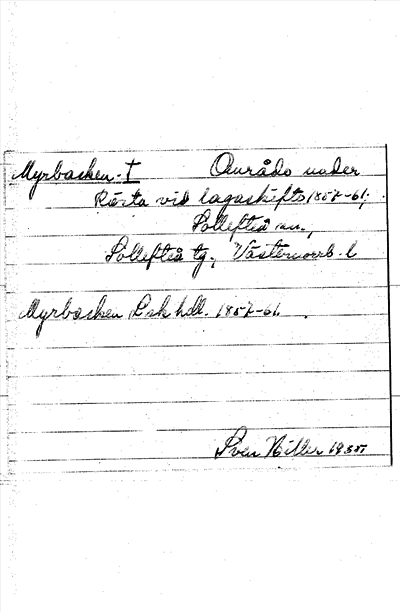 Myrbacken. † Område under
Rösta vid lagaskifts 1857-61;
Sollefteå sn.,
Sollefteå tg., Västernorrl. l
Myrbacken Lsk hdl. 1857-61.
Sven Hiller 1935